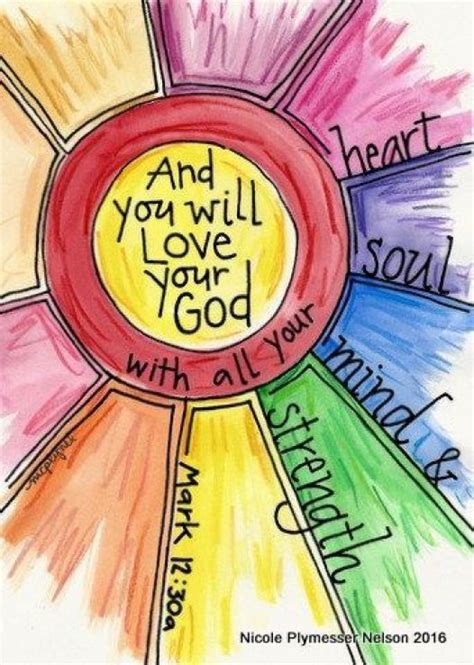 And
you will
Love
your
God
with all your
heart
soul
mind &
strength
Mark 12:30a
Nicole Plymesser Nelson 2016